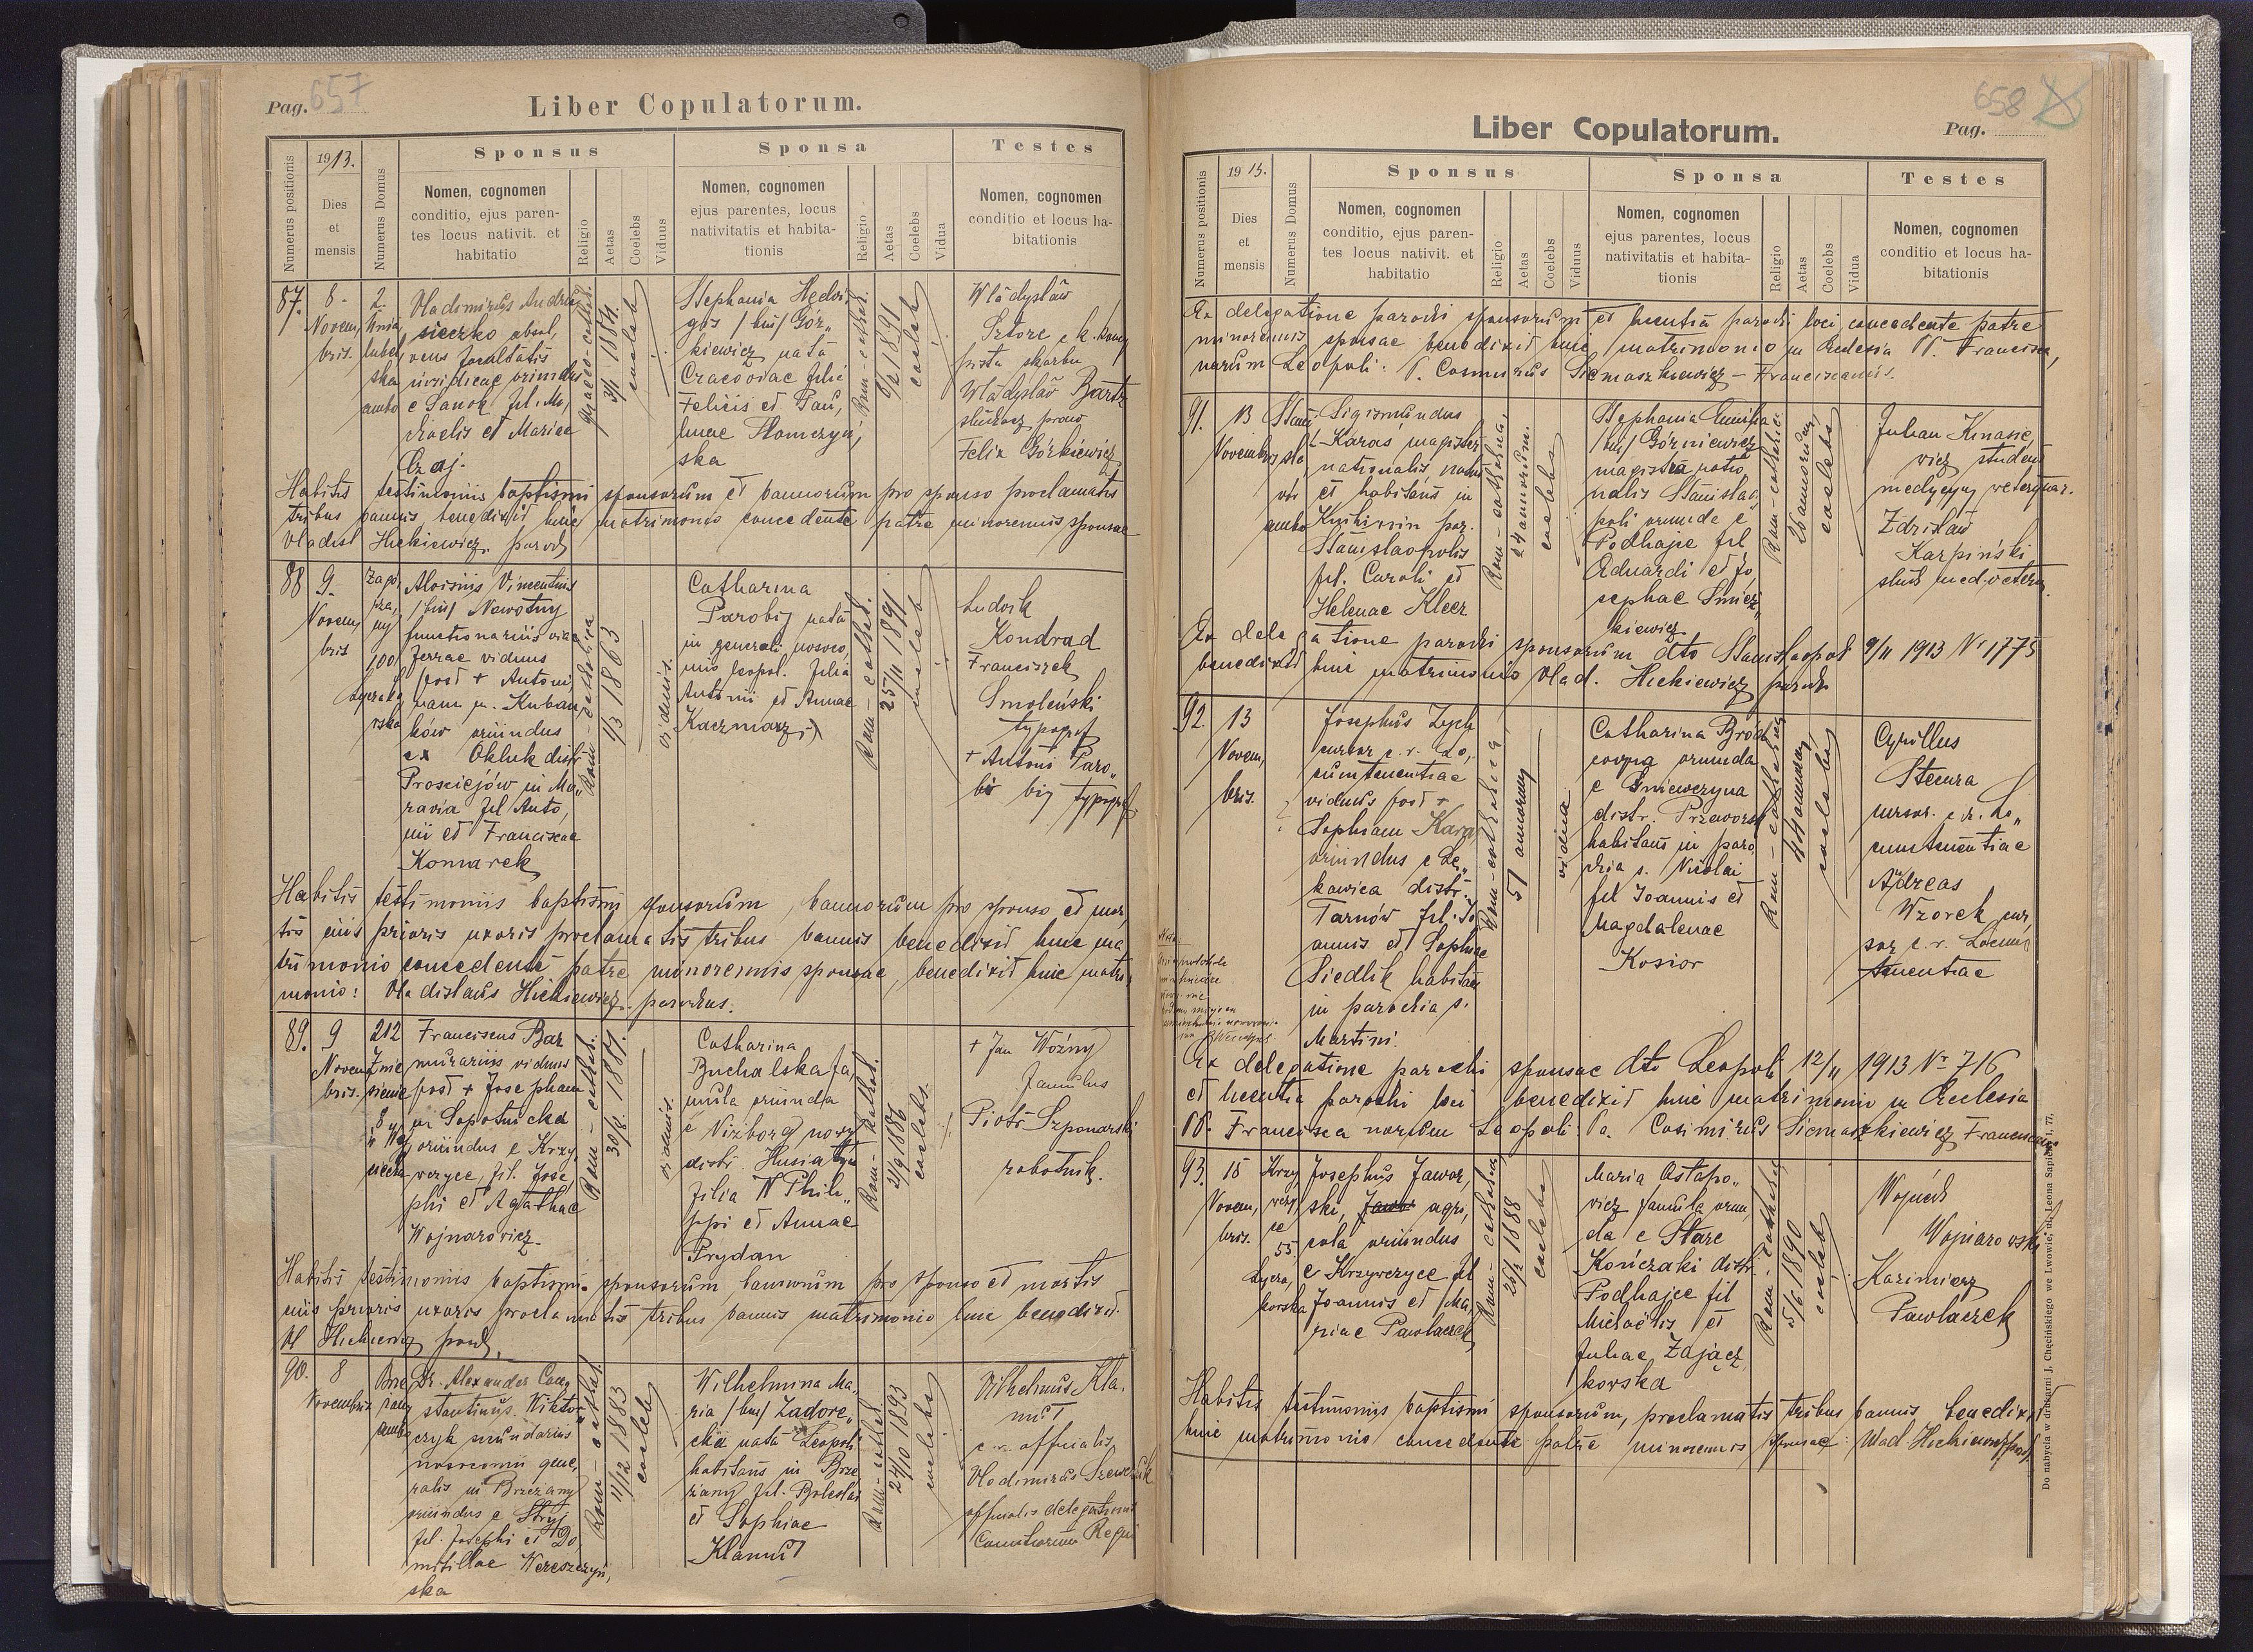 Pag. 657
Liber Copulatorum.
Numerus positionis
1913.
Dies
et
mensis
Numerus Domus
Sponsus
Nomen, cognomen
conditio, ejus paren-
tes locus nativit. et
habitatio
Religio
Aetas
Coelebs
Viduus
Sponsa
Nomen, cognomen
ejus parentes, locus
nativitatis et habita-
tionis
Religio
Aetas
Coelebs
Vidua
Testes
Nomen, cognomen
conditio et locus ha-
bitationis
87.
8.
Novem,
bris.
2.
Unia,
lubel,
ska
ambo
Vladimirus Andrej
sieczko absol,
vens facultatis
iuridicae oriundus
e Sanok fil. Mi,
chaelis et Mariae
Czaj.
graeco-cathol.
3/1 1884.
coeleb
Stephania Hedvi
gis /bin/ Gór„
kiewicz nata
Cracoviae filia
Felicis et Pau,
linae Słomczyń,
ska
Rom-cathol.
9/2 1891
coeleb
Władysław
Sztorc c. k.
pista skarbu
Władysław Bartz
słuchacz praw
Felix Górkiewicz
Habitis testimoniis baptismi sponsorum et bannorum pro sponso proclamatis
tribus bannis benedixit huic matrimonio concedente patre minorennis sponsae
Vladisl Hickiewicz. paroch
88
9.
Novem,
bris
100
Łycza
Aloisius Vincentius
/bin/ Nawotny
functionarius viae
ferrae viduus
post + Antoni,
nam n. Kuban
ków oriundus
ex Okluk distr
Prosciejów in Mo„
ravia fil Anto,
nii et Franciscae
Komarek
Rom-catholica
1/3 1863
viduus.
Catharina
Parobij nata
in generali nosoco,
mio Leopol. filia
Antonii et Annae
Kaczmarz
Rom-cathol.
25/11 1891
coeleb
Ludvik
Kondrad
Franciszek
Smoleński
typograf
+ Antoni Paro„
bij typograf
Habitis testimoniis baptismi sponsorum bannorum pro sponso et mor,
tis eius prioris uxoris proclamatis tribus bannis benedixit huic ma
trimonio concedente patre minorennis sponsae, benedixit huic matri,
monio: Vladislaus Hickiewicz. parochus.
89.
9
Novem
bris.
212
Znie
sienie
Franciscus Bar
murarius viduus
post + Josepham
m Sopotnicka
oriundus e Krzy,
wczyce fil. Jose
phi et Agathae
Wojnarowicz.
Rom-cathol.
30/8. 1881.
viduus.
Catharina
Buchalska fa,
mula oriunda
e Niżborg nowy
distr. Husiatyn
filia Phili„
ppi et Annae
Prydan
Rom-cathol.
21/9 1886
coelebs.
+ Jan Woźny
famulus
Piotr Szponarski
robotnik.
Habitis testimoniis baptismi sponsorum, bannorum pro sponso et mortis
eius prioris uxoris proclamatis tribus bannis matrimonio huic benedixit.
Vl Hickiewicz paroch,
90.
8
Novembris
Brze
żany
ambo
Dr. Alexander Con,
stantinus Wiktor„
czyk secundarius
nosocomii gene,
ralis in Brzeżany
oriundus e Stryj
fil. Josephi et Do,
mitillae Wereszczyń,
ska
Rom-cathol.
11/12 1883
coeleb
Wilhelmina Ma„
ria /bin/ Zadore„
cka nata Leopoli
habitans in Brze
żany fil. Boleslai
et Sophiae
Klamut
Rom-cathol
24/10 1893
coelebs
Vilhelmus Kla,
mut
c. r. officialis
Vlodimirus Szewczuk
officialis delegationis
Comitiorum Regni
658
Pag.
Liber Copulatorum.
Numerus positionis
1913.
Dies
et
mensis
Numerus Domus
Sponsus
Nomen, cognomen
conditio, ejus paren-
tes locus nativit. et
habitatio
Religio
Aetas
Coelebs
Viduus
Sponsa
Nomen, cognomen
ejus parentes, locus
nativitatis et habita-
tionis
Religio
Aetas
Coelebs
Vidua
Testes
Nomen, cognomen
conditio et locus ha-
bitationis
Ex delegatione parochi sponsorum et licentia parochi loci, concedente patre
minorennis sponsae benedixit huic matrimonio in Ecclesia PP. Francisca,
norum Leopoli: P. Casimirus Siemaszkiewicz – Franciscanus.
91.
13
Novembris
Stani
sła
wów
ambo
Sigismundus
Karas, magister
nationalis natus
et habitans in
Knihinin par.
Stanislaopolis
fil. Caroli et
Helenae Kleer
Rom-catholica,
24 annorum.
coelebs
Stephania Emilia
/bin/ Górniewicz
magistra natio,
nalis Stanislao,
poli oriunda e
Podhajce fil
Eduardi et Jo,
sephae Śmież„
kiewicz
Rom-catholic.
26 annorum
coelebs
Julian Knasie,
wicz student
medycyny weterynar.
Zdzisław
Karpiński
słuch med. weteryn.
Ex delegatione parochi sponsorum dto Stanislaopol 9/11 1913 No 1775
benedixit huic matrimonio Vlad. Hickiewicz paroch
92.
13
Novem,
bris.
Josephus Zych
cursor c. r. Lo,
cumtenentiae
viduus post +
Sophiam Kara
oriundus e Łę„
kawica distr.
Tarnów fil. Jo
annis et Sophiae
Siedlik habitans
in parochia s.
Martini.
Rom-catholica
51 annorum
viduus
Catharina Brod
oriunda
e Gniewczyna
distr. Przeworsk
habitans in paro,
chia s. Nicolai
fil Joannis et
Magdalenae
Kosior
Rom-catholica
44 annorum
coelebs
Cyrillus
Stecura
cursor. c. r. Lo„
cumtenentiae
Andreas
Wzorek cur,
sor c. r. Locum
tenentiae
Ex delegatione parochi sponsae dto Leopoli 12/11 1913 No 716
et licentia parochi loci benedixit huic matrimonio in Ecclesia
PP. Franciscanorum Leopoli: Pa. Casimirus Siemaszkiewicz Franciscanus
93.
15
Novem,
bris.
Krzy
wczy,
ce
55
Łycza,
kowska
Josephus Jawor,
ski, agri,
cola oriundus
e Krzywczyce fil
Joannis et Ma,
riae Pawlaczek
Rom-catholica
25/2 1888
coelebs
Maria Ostapo„
wicz famula oriun,
da e Stare
Kończaki distr.
Podhajce fil
Michaelis et
Juliae Zającz
kowska
Rom-catholica
5/6 1890
coeleb
Wojciech
Wojnarowski
Kazimierz
Pawlaczek
Habitis testimoniis baptismi sponsorum, proclamatis tribus bannis benedixit
huic matrimonio concedente patre minorennis sponsae: Wlad Hickiewicz par.
Do nabycia w drukarni J. Chęcińskiego we Lwowie, ul. Leona Sapiehy l. 77.